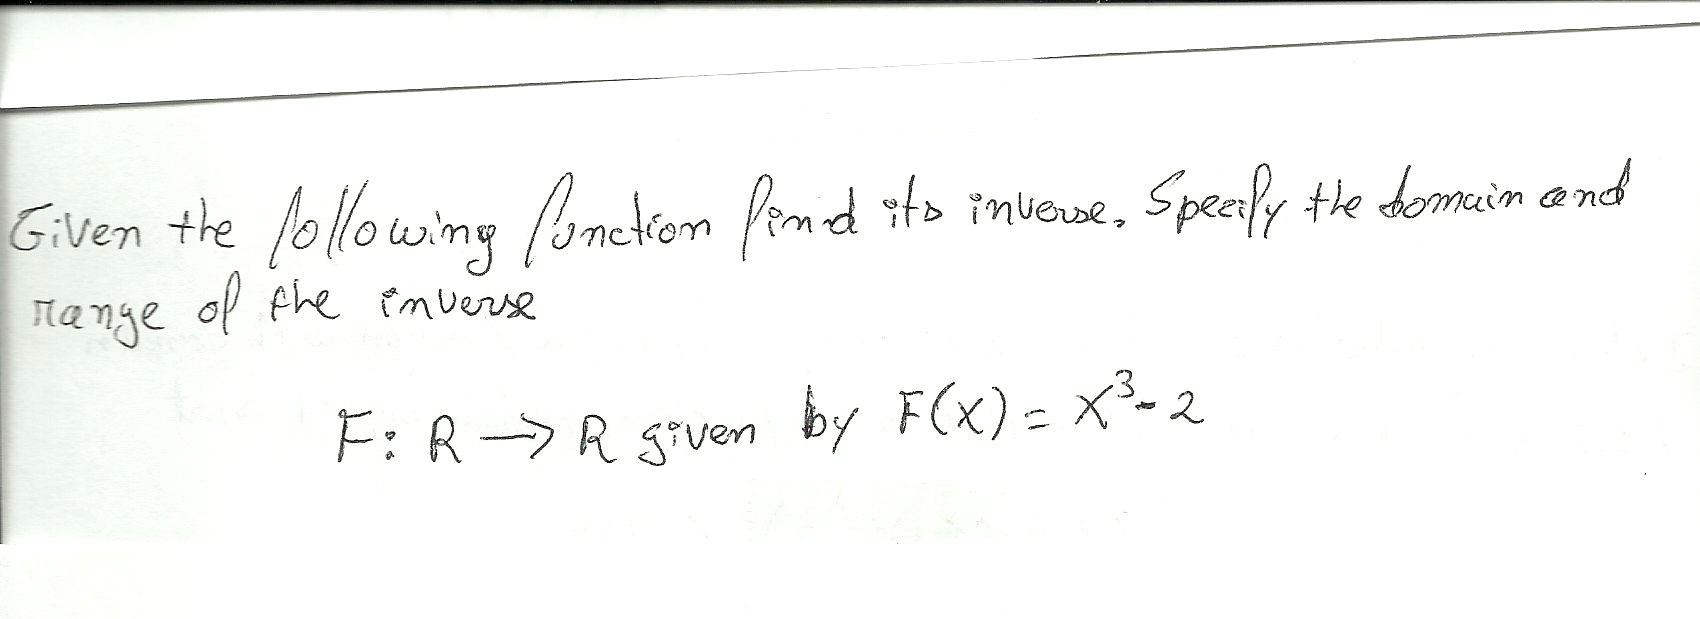 Given the following function find its inverse. Specify the domain and
range of the inverse
F: R → R given by F(x) = x³- 2